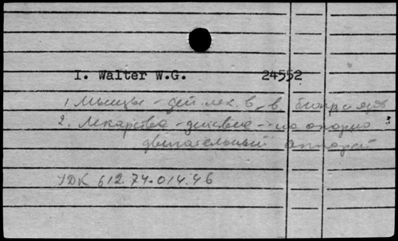 I. Walter W.G. 24552
1. Мышцы - дей. лек. в-в
2. Лекарства - действие - на опорно
двигательный аппарат
УДК 612.74.014.46